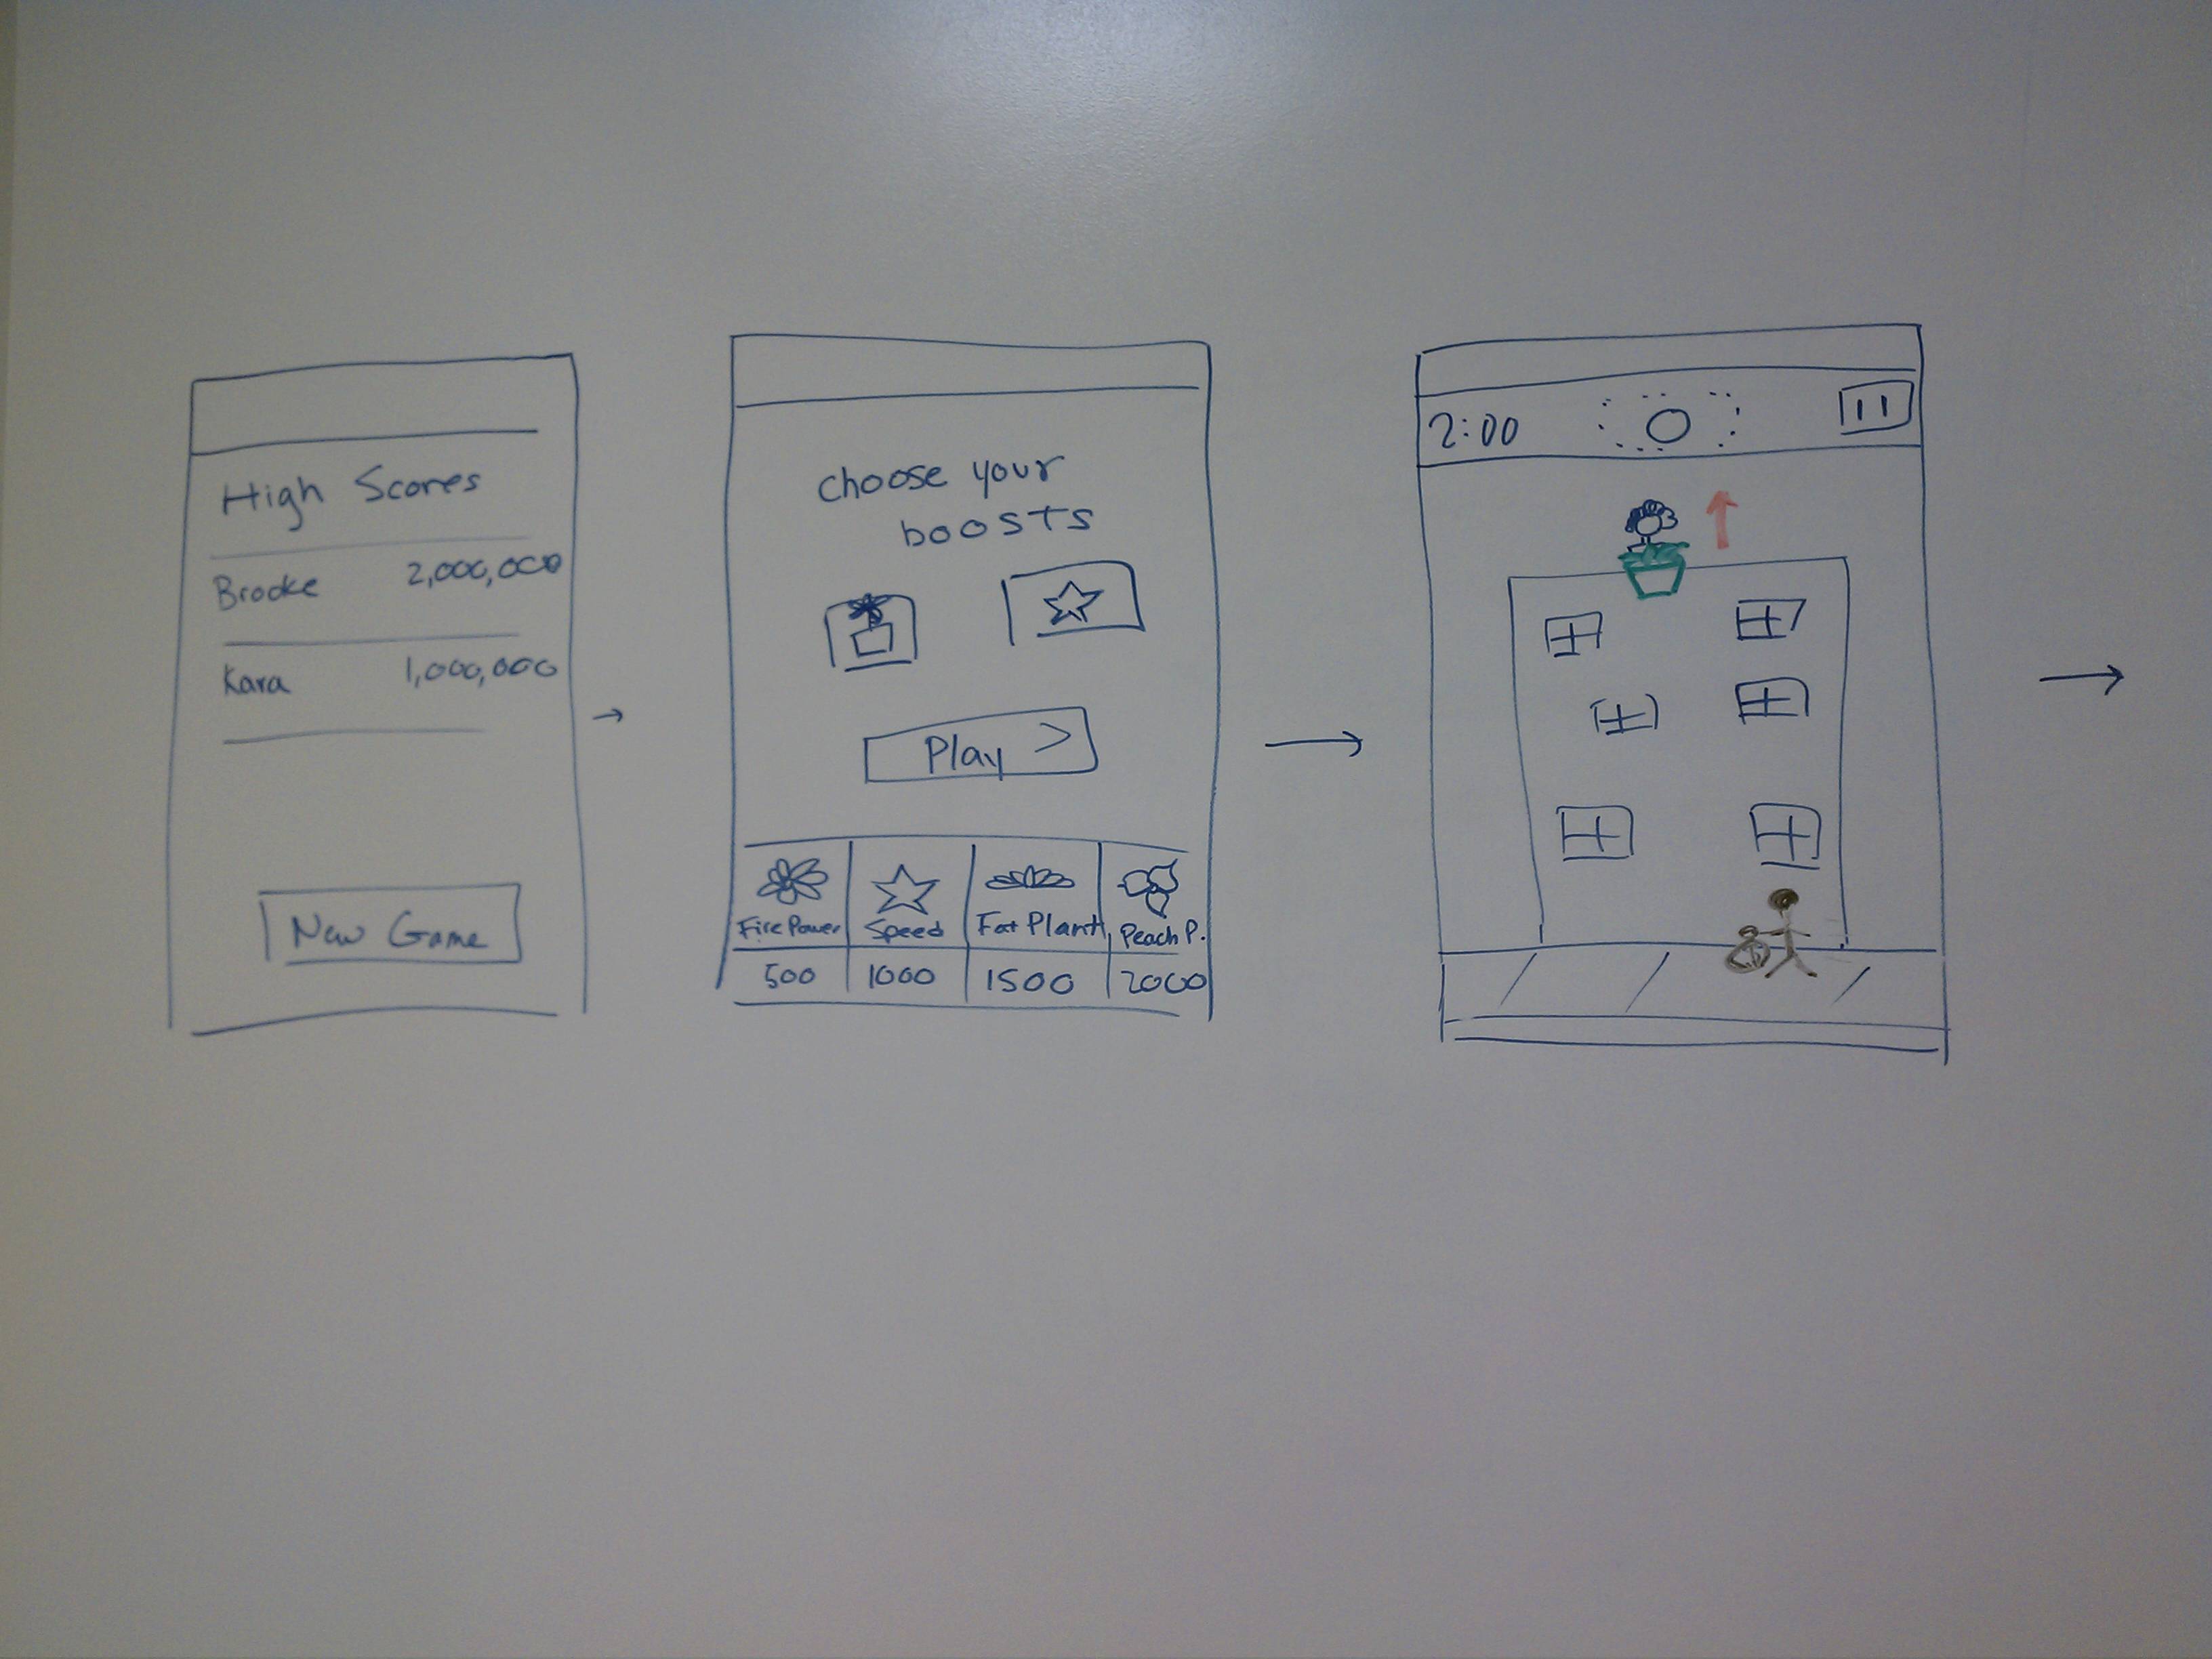 High Scores
Brooke 2,000,000
Kara 1,000,000
New Game
choose your
boosts
Play >
Fire Power Speed Fat Plant Peach P.
500 1000 1500 2000
2:00